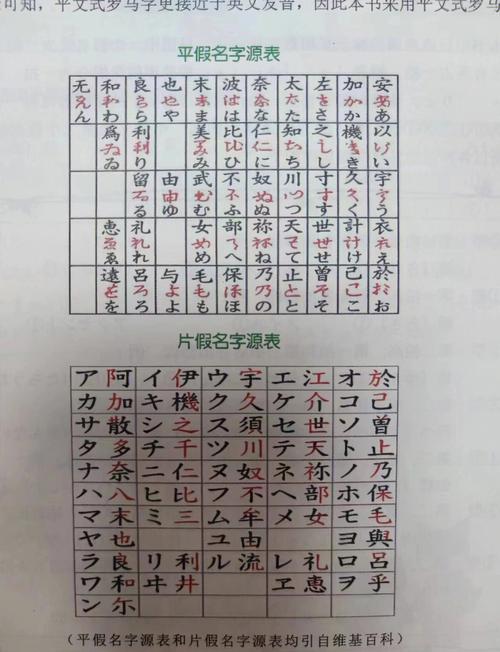 可知，平文式罗马字更接近于英文发音，因此本书采用平文式罗马
平假名字源表
无んん 和わわ 良らら 也やや 末まま 波はは 奈なな 太たた 左ささ 加かか 安ああ
爲ゐゐ 利りり 美みみ 比ひひ 仁にに 知ちち 之しし 機きき 以いい
留るる 由ゆゆ 武むむ 不ふふ 奴ぬぬ 川つつ 寸すす 久くく 宇うう
恵ゑゑ 礼れれ 女めめ 部へへ 祢ねね 天てて 世せせ 計けけ 衣ええ
遠をを 呂ろろ 与よよ 毛もも 保ほほ 乃のの 止とと 曽そそ 己ここ 於おお
片假名字源表
ア阿 イ伊 ウ宇 エ江 オ於
カ加 キ機 ク久 ケ介 コ己
サ散 シ之 ス須 セ世 ソ曽
タ多 チ千 ツ川 テ天 ト止
ナ奈 ニ仁 ヌ奴 ネ祢 ノ乃
ハ八 ヒ比 フ不 ヘ部 ホ保
マ末 ミ三 ム牟 メ女 モ毛
ヤ也 ユ由 ヨ與
ラ良 リ利 ル流 レ礼 ロ呂
ワ和 ヰ井 ヱ恵 ヲ乎
ン尓
（平假名字源表和片假名字源表均引自维基百科）